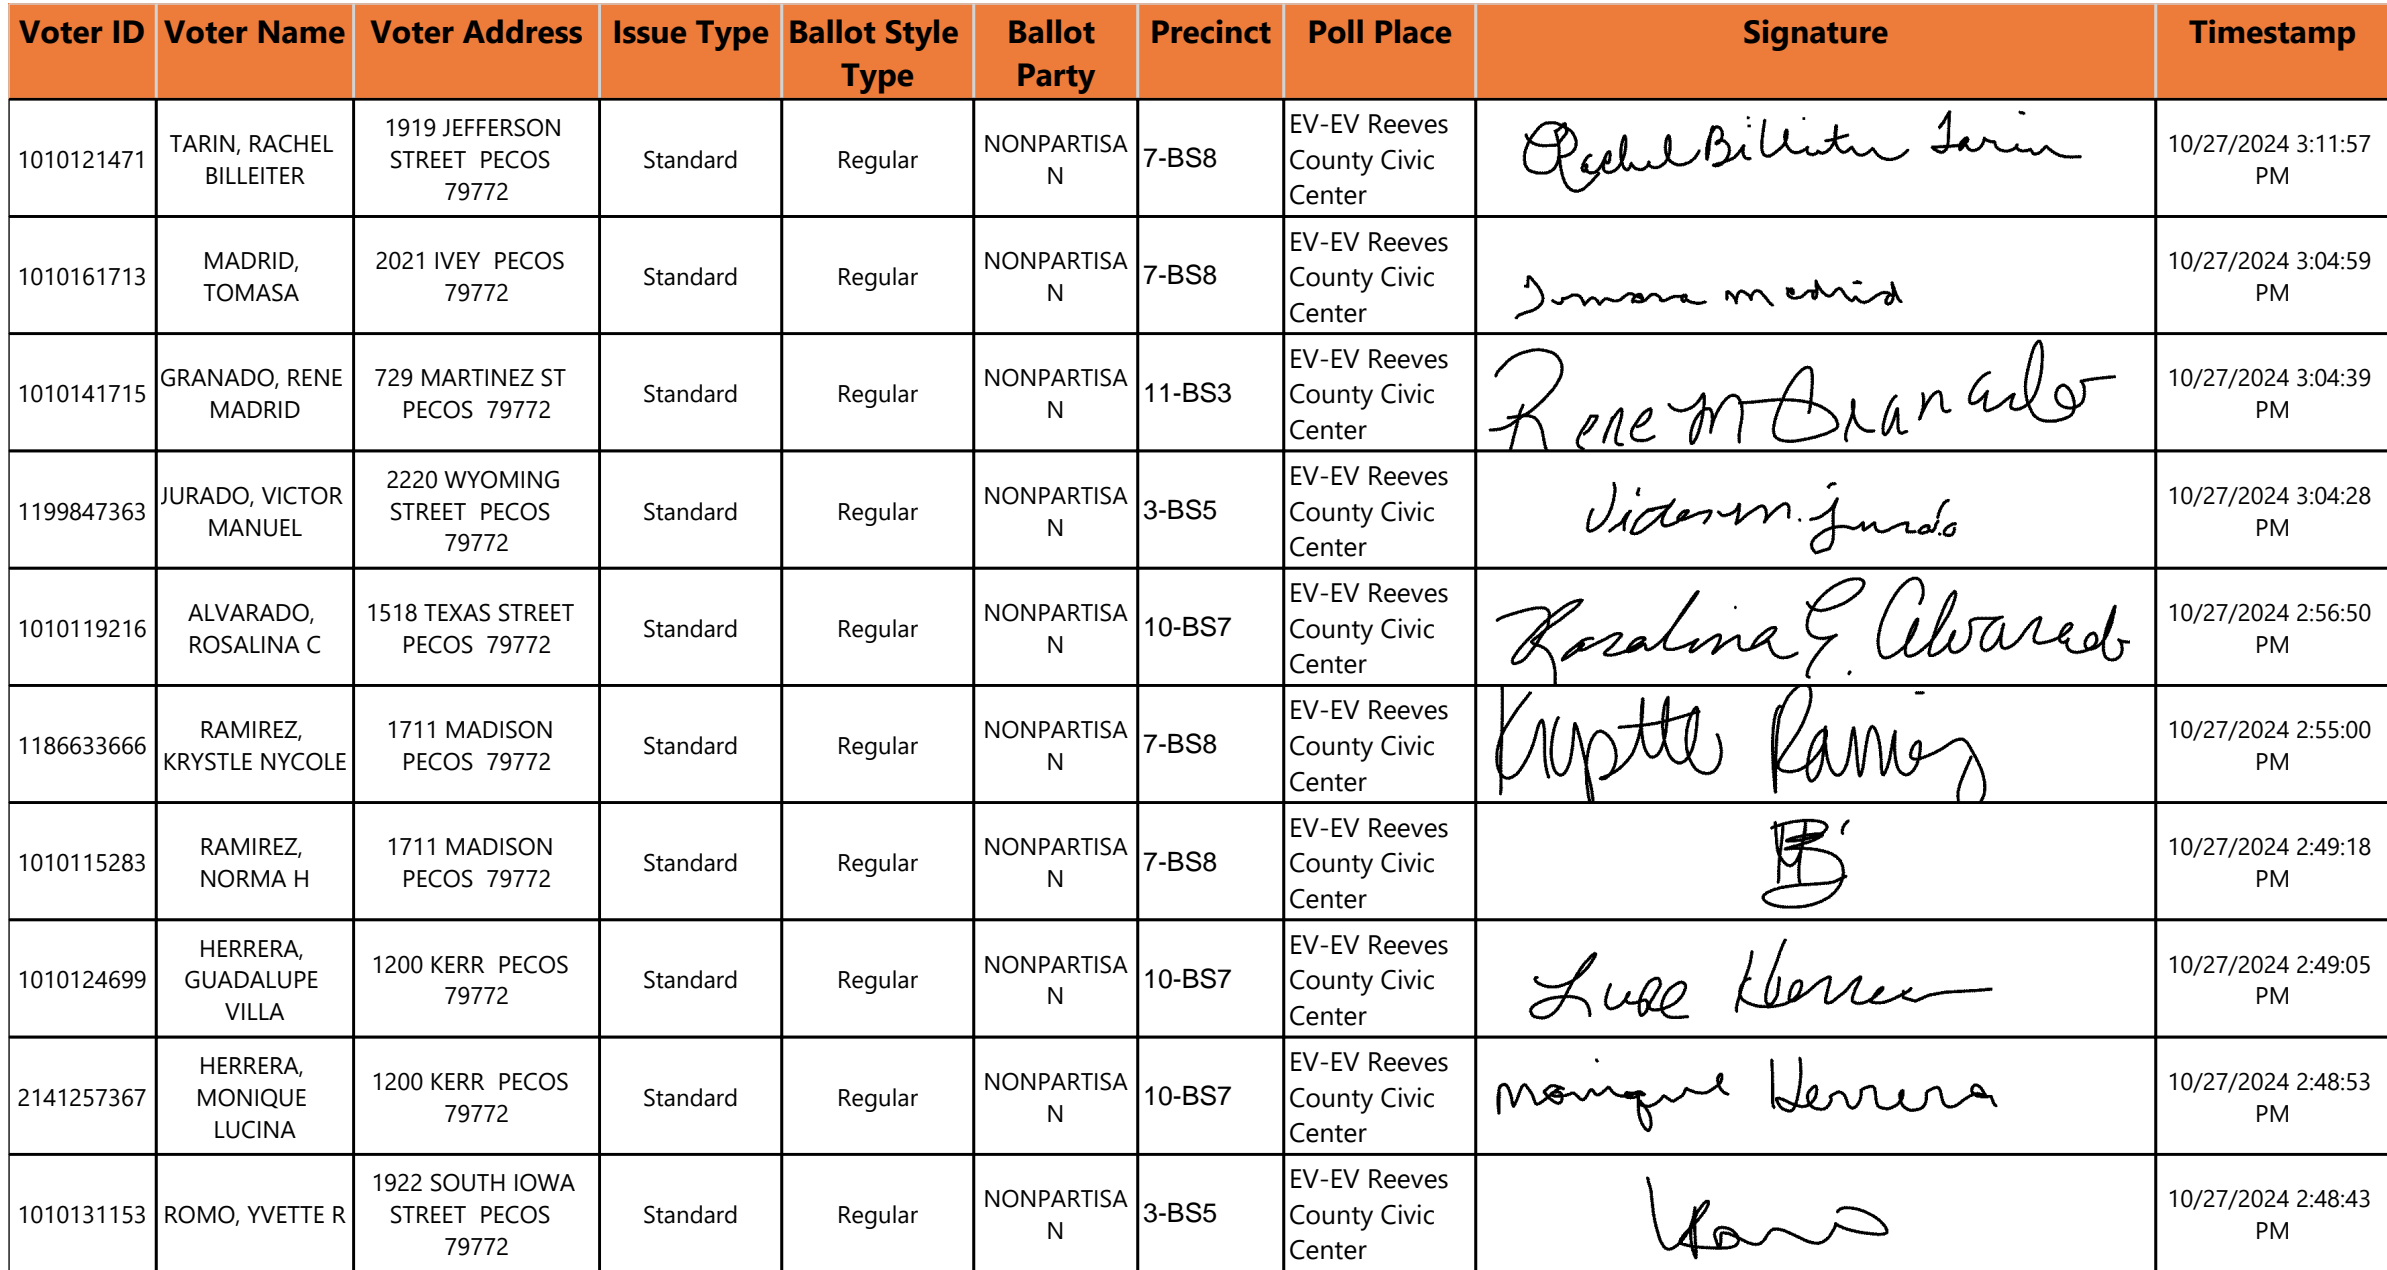 Voter ID Voter Name Voter Address Issue Type Ballot Style Type Ballot Party Precinct Poll Place Signature Timestamp
1010121471 TARIN, RACHEL BILLEITER 1919 JEFFERSON STREET PECOS 79772 Standard Regular NONPARTISAN 7-BS8 EV-EV Reeves County Civic Center Rachel Billeiter Tarin 10/27/2024 3:11:57 PM
1010161713 MADRID, TOMASA 2021 IVEY PECOS 79772 Standard Regular NONPARTISAN 7-BS8 EV-EV Reeves County Civic Center Tomasa Madrid 10/27/2024 3:04:59 PM
1010141715 GRANADO, RENE MADRID 729 MARTINEZ ST PECOS 79772 Standard Regular NONPARTISAN 11-BS3 EV-EV Reeves County Civic Center Rene M Granado 10/27/2024 3:04:39 PM
1199847363 JURADO, VICTOR MANUEL 2220 WYOMING STREET PECOS 79772 Standard Regular NONPARTISAN 3-BS5 EV-EV Reeves County Civic Center Victor M. Jurado 10/27/2024 3:04:28 PM
1010119216 ALVARADO, ROSALINA C 1518 TEXAS STREET PECOS 79772 Standard Regular NONPARTISAN 10-BS7 EV-EV Reeves County Civic Center Rosalina C. Alvarado 10/27/2024 2:56:50 PM
1186633666 RAMIREZ, KRYSTLE NYCOLE 1711 MADISON PECOS 79772 Standard Regular NONPARTISAN 7-BS8 EV-EV Reeves County Civic Center Krystle Ramirez 10/27/2024 2:55:00 PM
1010115283 RAMIREZ, NORMA H 1711 MADISON PECOS 79772 Standard Regular NONPARTISAN 7-BS8 EV-EV Reeves County Civic Center 10/27/2024 2:49:18 PM
1010124699 HERRERA, GUADALUPE VILLA 1200 KERR PECOS 79772 Standard Regular NONPARTISAN 10-BS7 EV-EV Reeves County Civic Center Lupe Herrera 10/27/2024 2:49:05 PM
2141257367 HERRERA, MONIQUE LUCINA 1200 KERR PECOS 79772 Standard Regular NONPARTISAN 10-BS7 EV-EV Reeves County Civic Center Monique Herrera 10/27/2024 2:48:53 PM
1010131153 ROMO, YVETTE R 1922 SOUTH IOWA STREET PECOS 79772 Standard Regular NONPARTISAN 3-BS5 EV-EV Reeves County Civic Center 10/27/2024 2:48:43 PM